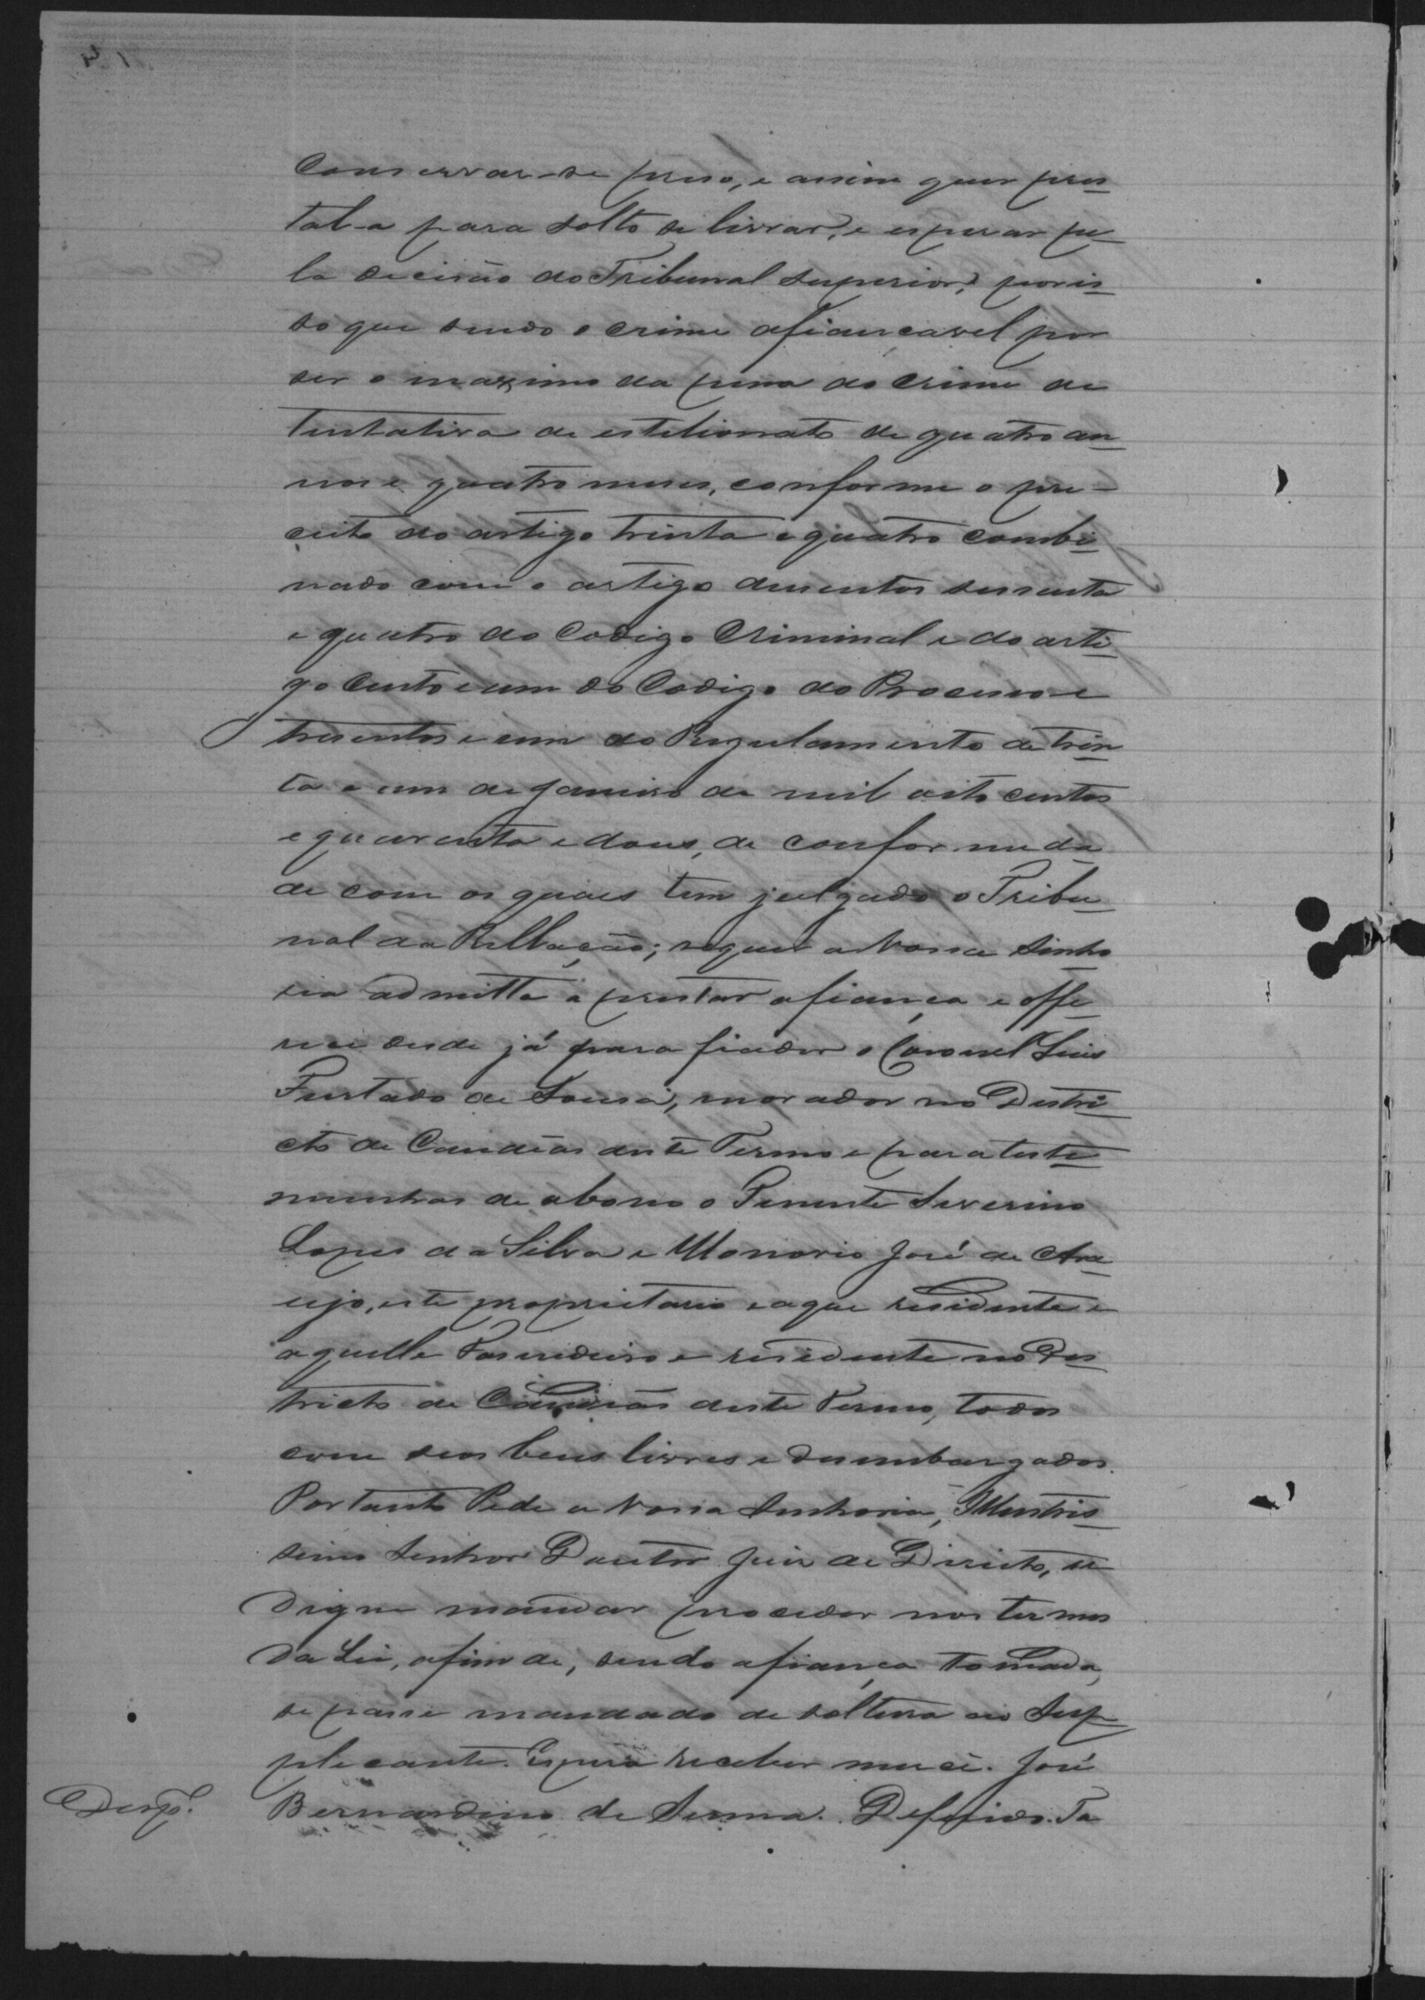 Conservar-se preso, e assim quer pres-
tal-a para solto se livrar, e esperar pe-
la decisão do Tribunal Superior; poris-
so que sendo o crime afiançavel por
ser o maximo da pena do crime de
tentativa de estelionato de quatro an-
nos e quatro meses, conforme o pre-
ceito do artigo trinta e quatro combi-
nado com o artigo dusentos sessenta
e quatro do Codigo Criminal e do arti-
go cento e um do Codigo do Processo e
tresentos e um do Regulamento de trin-
ta e um de Janeiro de mil oito centos
e quarenta e dous, de conformida-
de com os quaes tem julgado o Tribu-
nal da Rellação; requer a Vossa Senho
ria admitta a prestar a fiança e offe-
rece desde já para fiador o Coronel Luis
Furtado de Sousa, morador no Destri-
cto de Candeas deste Termo e para teste-
munhas de abono o Tenente Severino
Lopes da Silva e Honorio José de Ara-
ujo, este proprietario e aqui residente e
aquelle Fasendeiro e residente no Des-
tricto de Candeas deste Termo, todos
com seos bens livres e desembargados.
Portanto Pede a Vossa Senhoria, Illustris-
simo Senhor Doutor Juiz de Direito, se
digne mandar proceder nos termos
da Lei, afim de, sendo a fiança tomada,
se passe mandado de soltura ao Sup-
plicante. Espera receber mercê. José
Desp.º Bernardino de Senna. Deferido. Ta